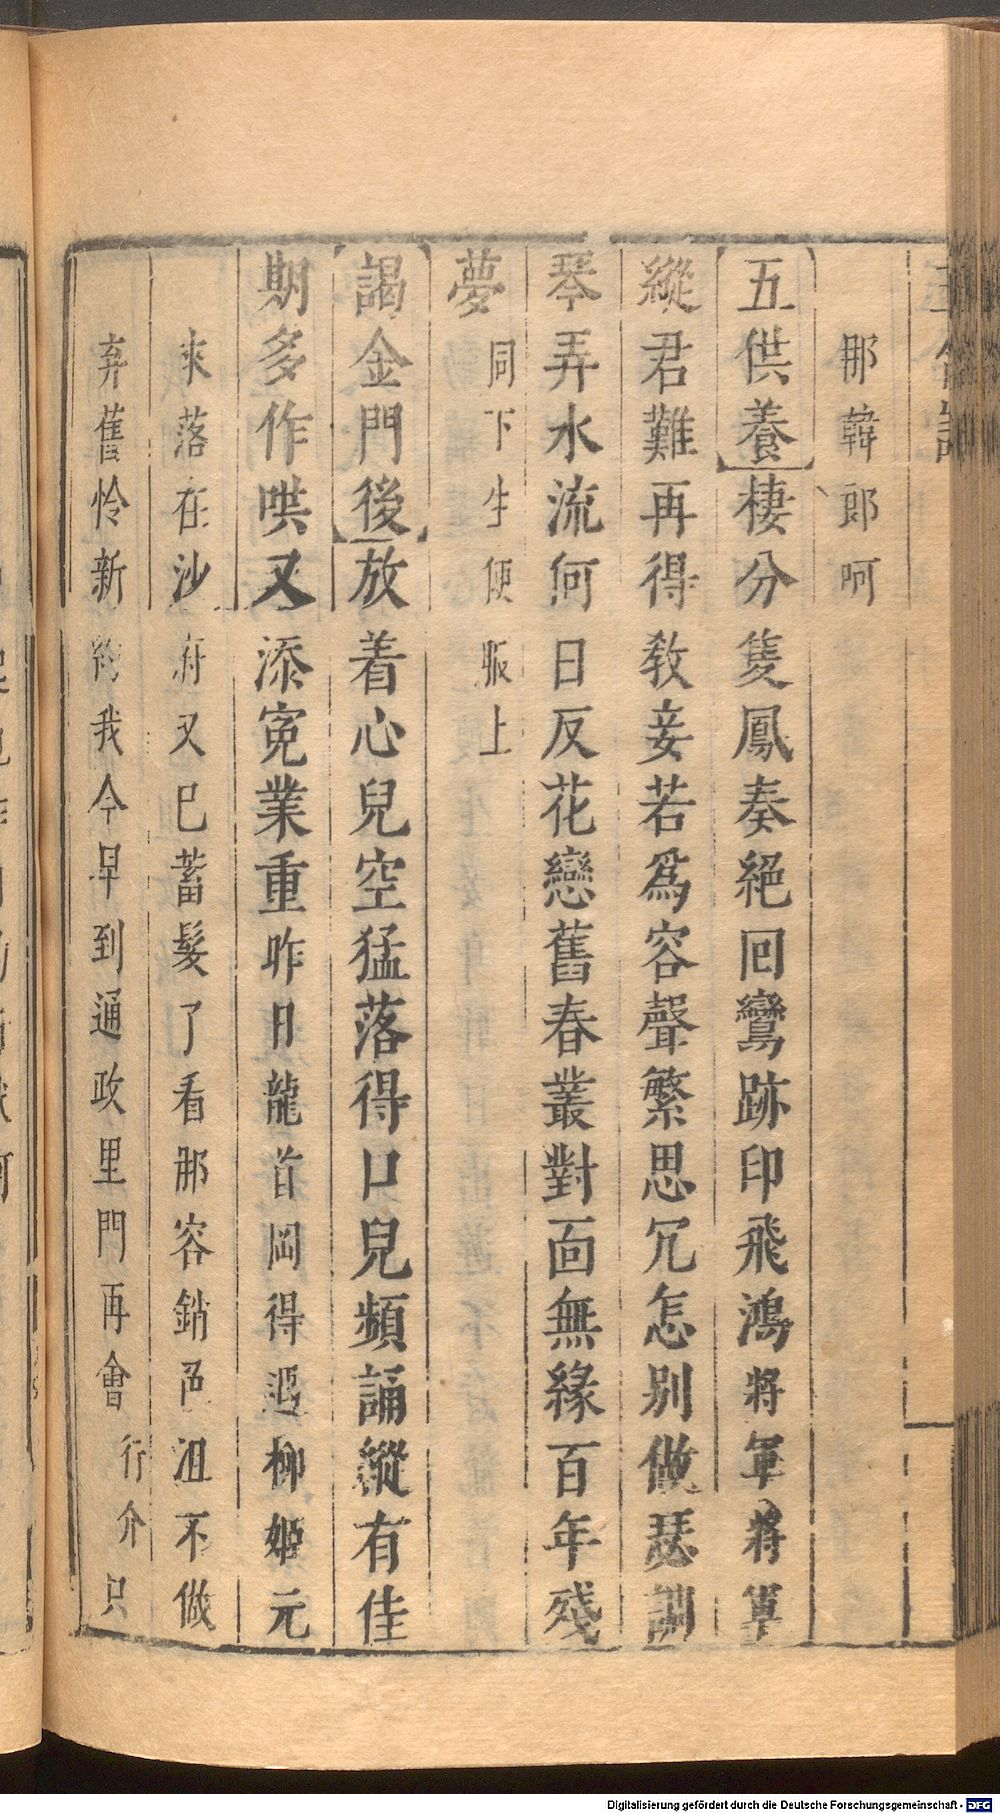 那韓郎呵
五供養棲分隻鳳奏絕回鸞跡印飛鴻將軍將軍
縱君難再得敎妾若爲容聲繁思冗怎別做瑟調
琴弄水流何日反花戀舊春叢對面無緣百年殘
夢同下生便服上
謁金門後放着心兒空猛落得口兒頻誦縱有佳
期多作哄又添寃業重昨日龍首岡得遇柳姬元
來落在沙府又已蓄髮了看那容銷色沮不做
弃舊怜新的我今早到通政里門再會行介只
Digitalisierung gefördert durch die Deutsche Forschungsgemeinschaft - DFG